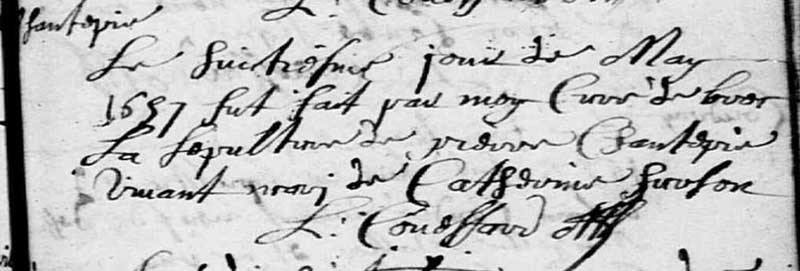 Chantepie
Le huictiesme jour de May
1657 fut fait par moy Curé de broc
La sepulture de pierre Chantepie
vivant mary de Catherine huslon
L. Coueffard